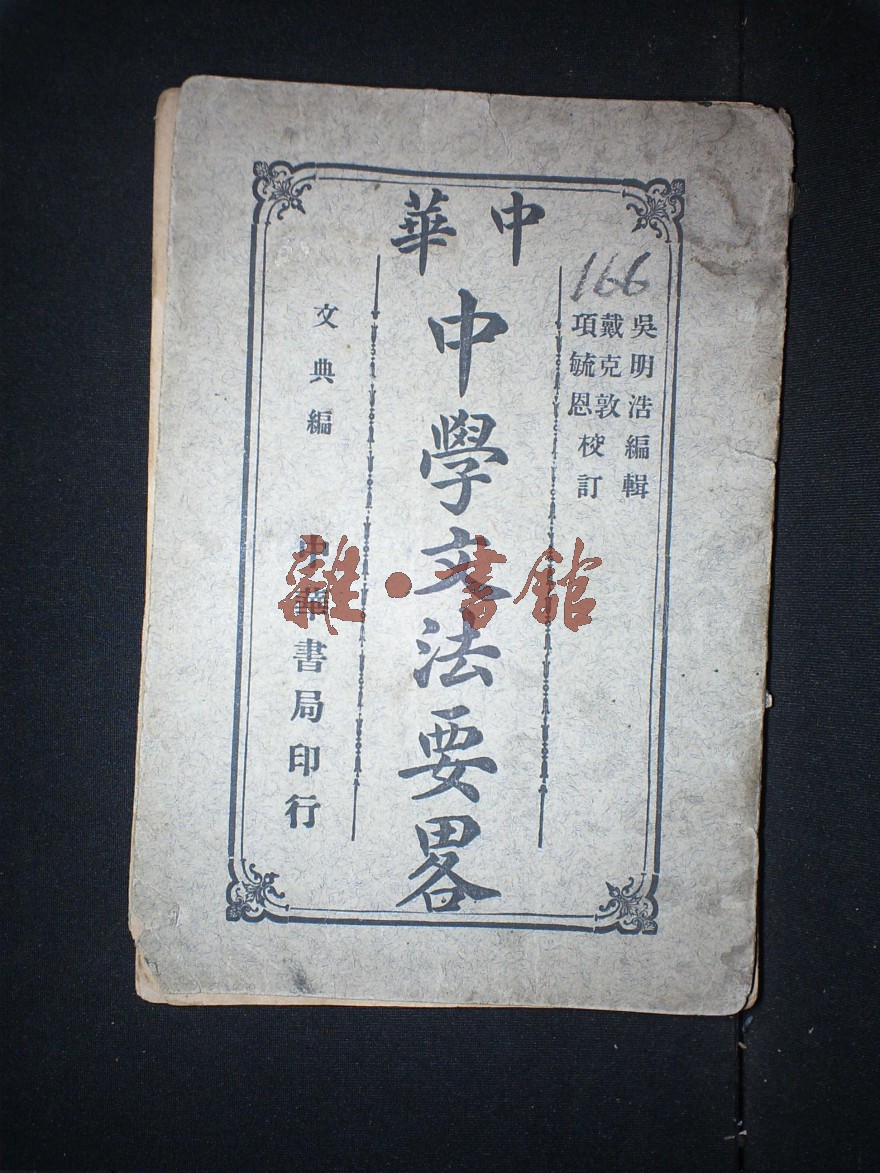 中華
166
吳明浩編輯
戴克敦
項毓恩
校訂
中學文法要畧
文典編
中華書局印行
雜·書館